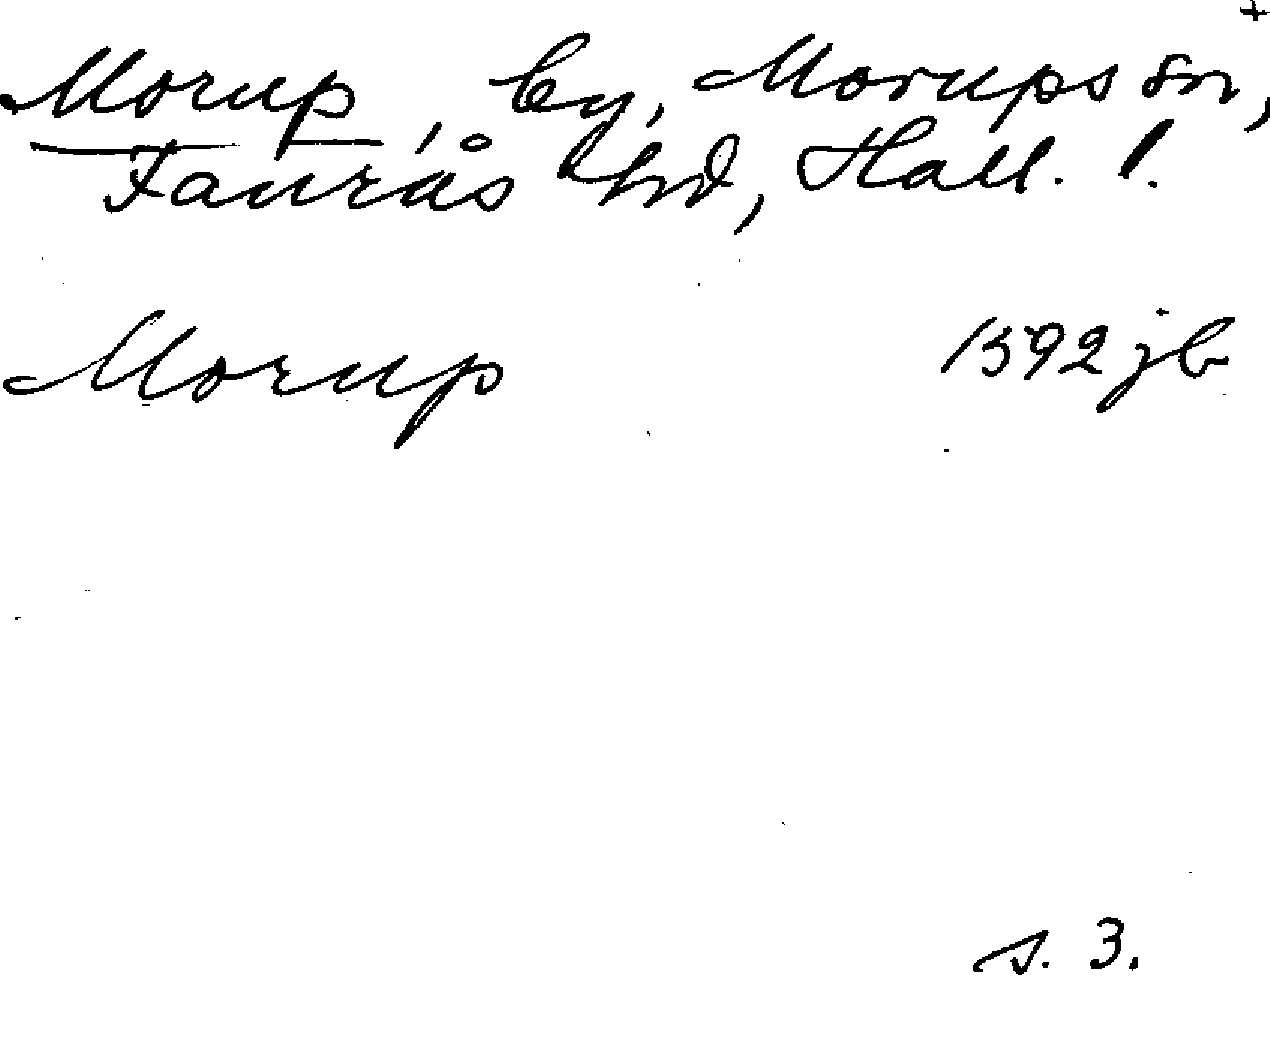 +
Morup, by, Morups sn,
Faurås hd, Hall. !.
Morup 1592 jb
s. 3.